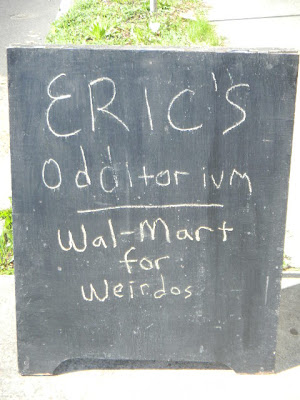 ERIC'S
Odditorium
Wal-Mart
for
Weirdos